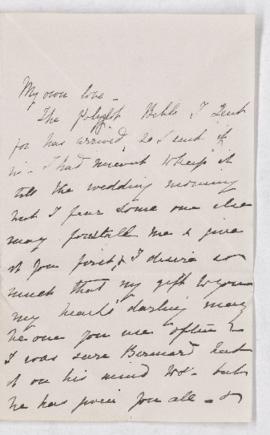 My own love –
The Polyglot Bible I sent
for has arrived, so I send it
in – I had meant to keep it
till the wedding morning
but I fear some one else
may forestall me & give
it you first & I desire so
much that my gift to you
my heart's darling may
be one you use often &
I was sure Bernard had
it on his mind – but
he has given you all – &